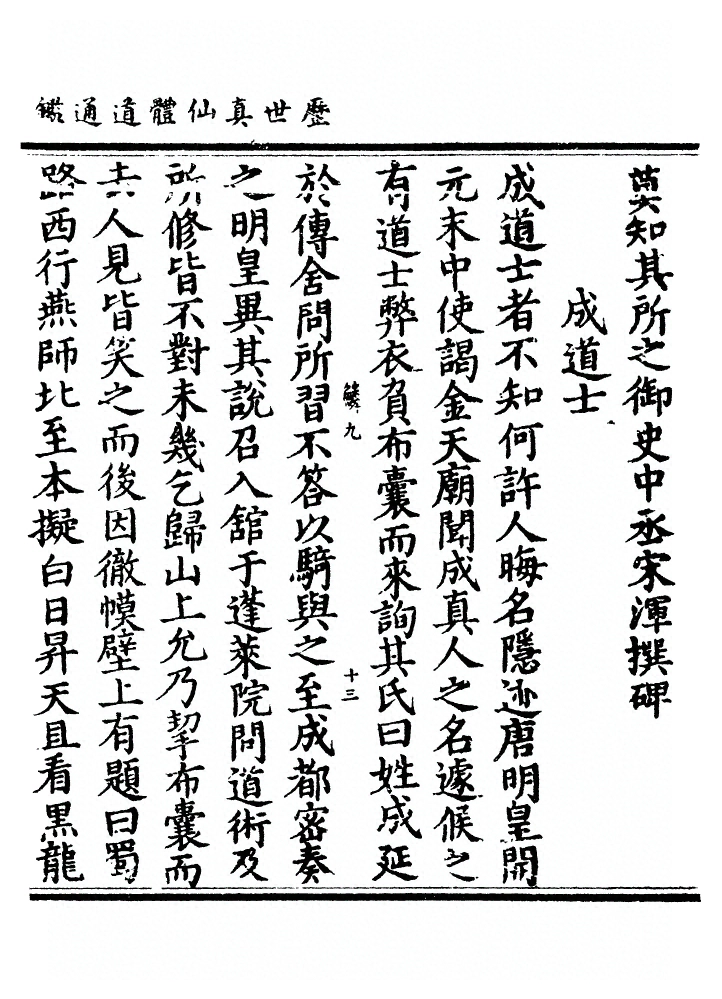 歷世真仙體道通鑑
莫知其所之御史中丞宋渾撰碑
成道士
成道士者不知何許人晦名隱迹唐明皇開
元末中使謁金天廟聞成真人之名遽候之
有道士弊衣負布囊而來詢其氏曰姓成延
鱗九
十三
於傳舍問所習不答以騎與之至成都密奏
之明皇異其說召入舘于蓬萊院問道術及
所修皆不對未幾乞歸山上允乃挈布囊而
去人見皆笑之而後因徹幙壁上有題曰蜀
路西行燕師北至本擬白日昇天且看黑龍